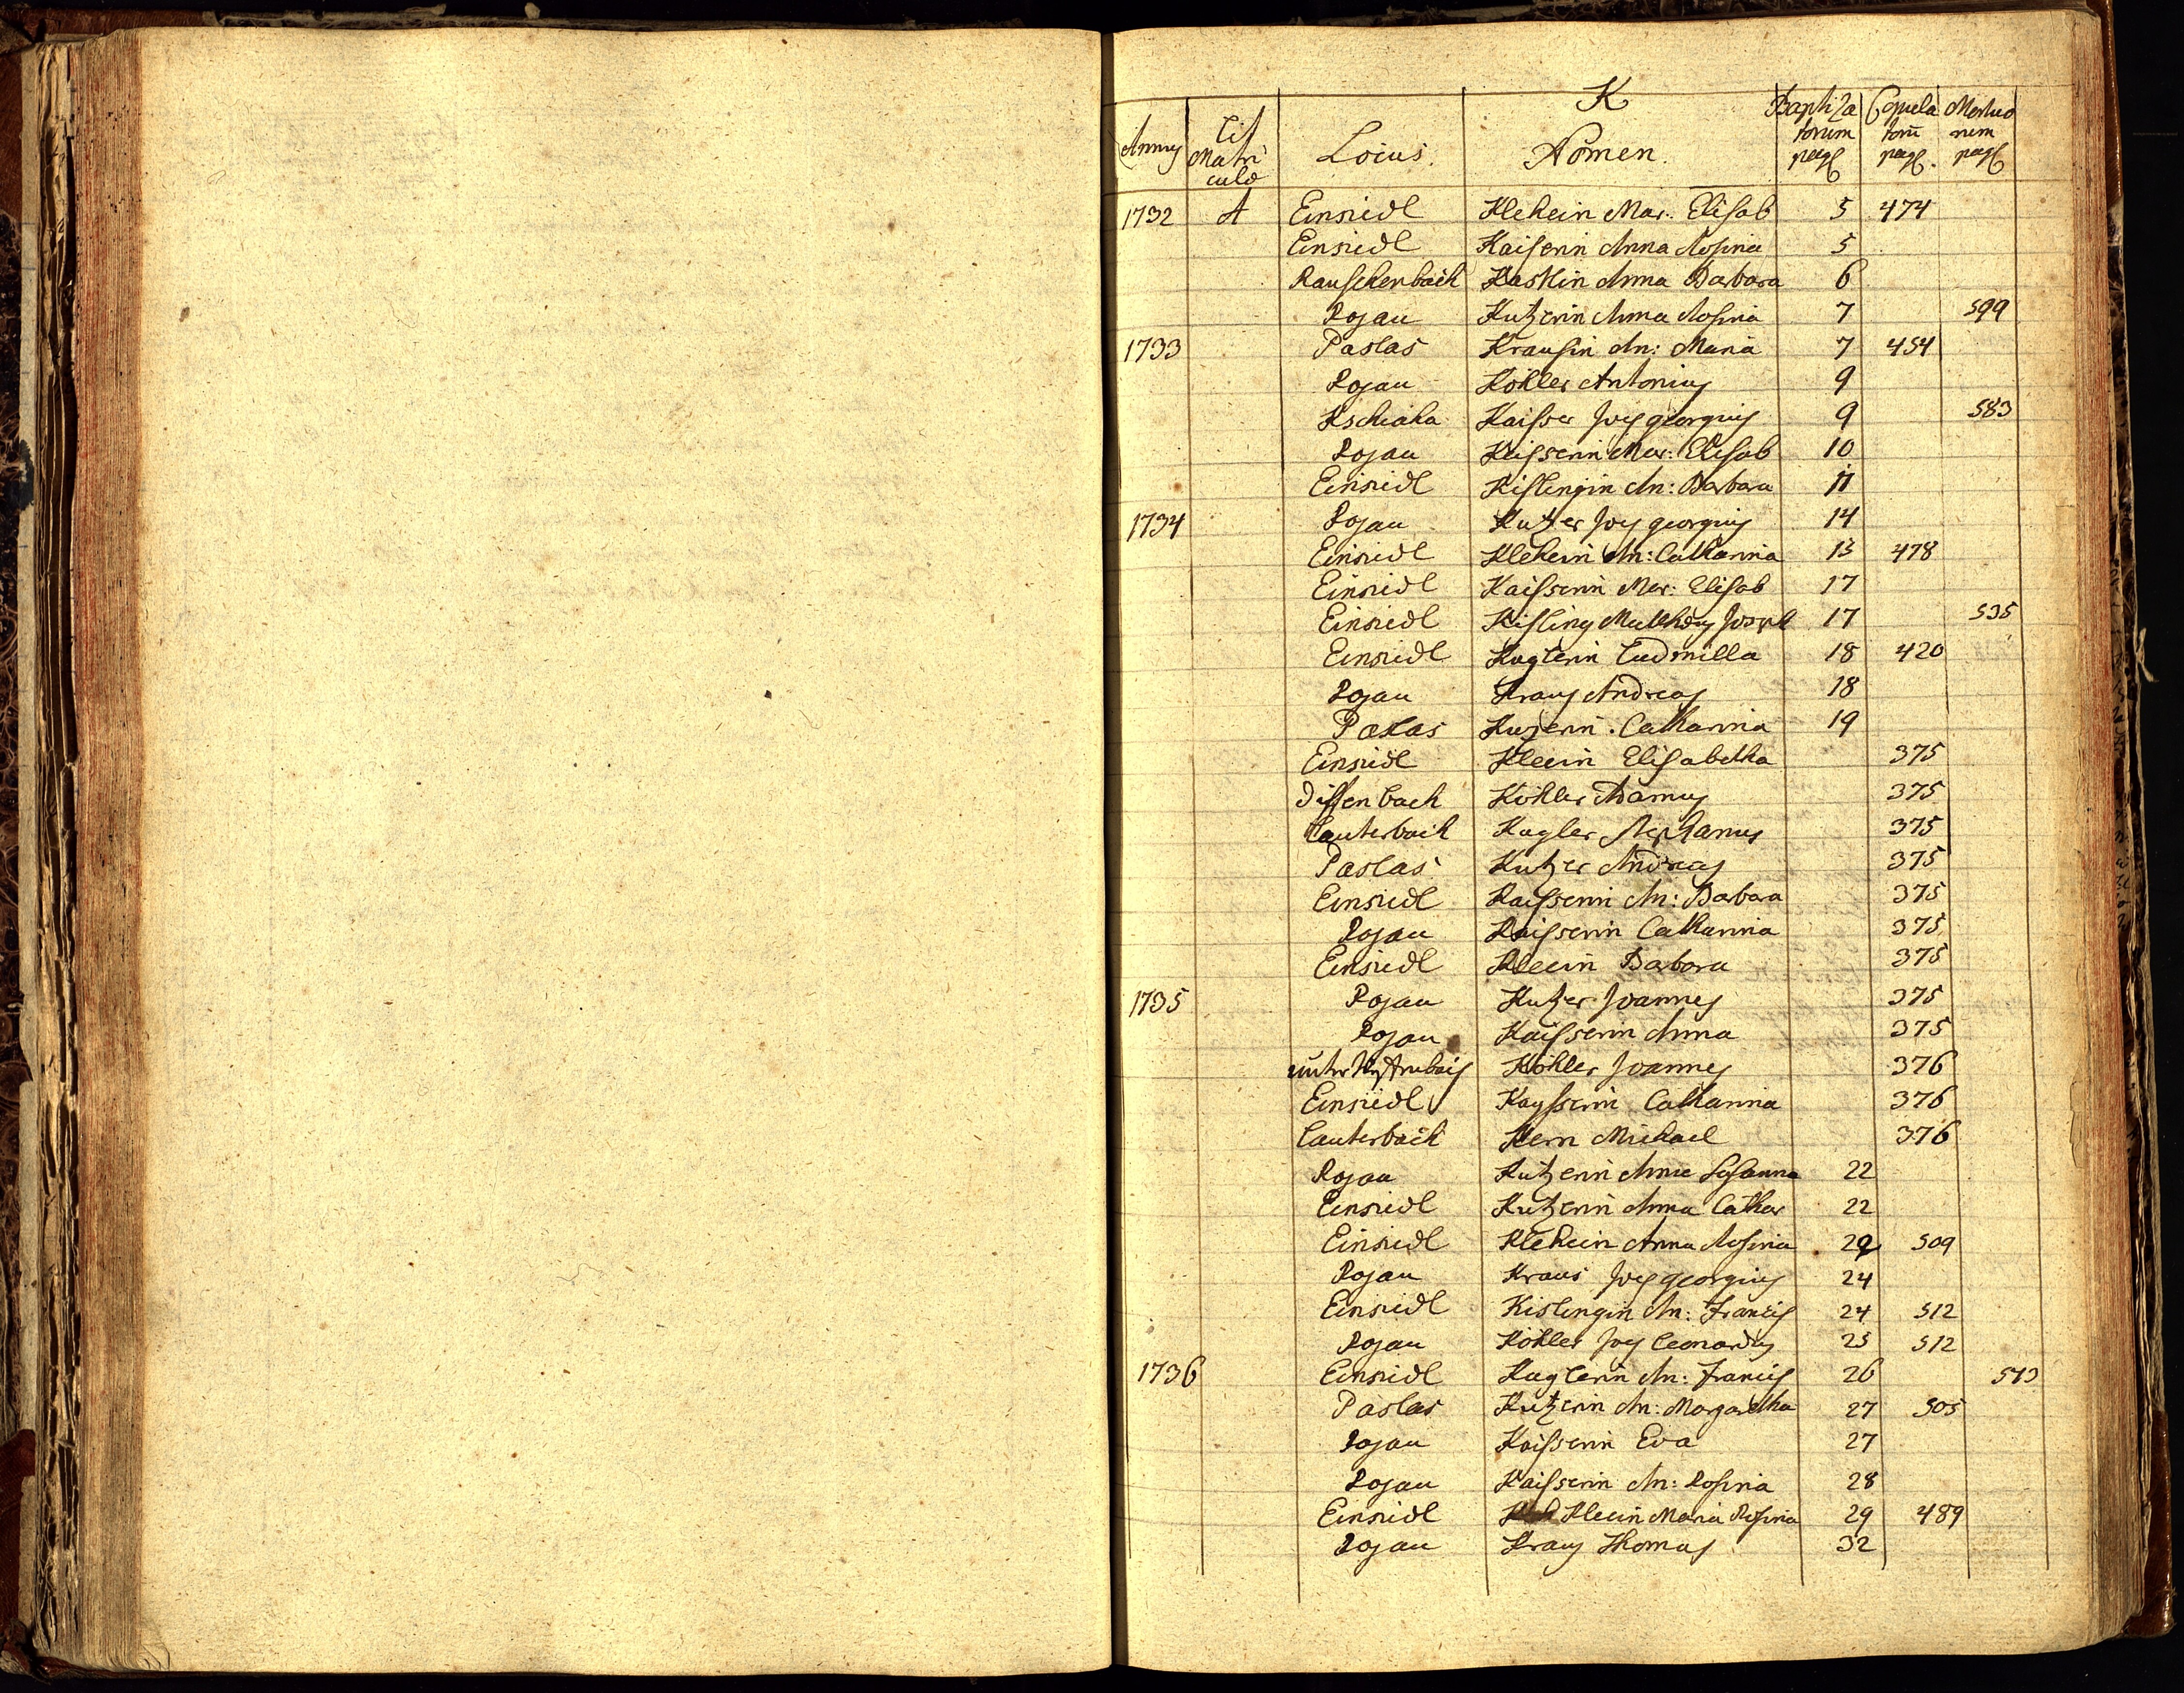 K
Annus Lit Matri culæ Locus. Nomen. Baptiza torum pag Copula torū pag. Mortuo rum pag
1732 A Einsiedl Klehein Mar. Elisab 5 474
Einsiedl Kaiserin Anna Rosina 5
Rauschenbach Kaskin Anna Barbara 6
Rojau Kutzerin Anna Rosina 7 599
1733 Paslas Krausin An: Maria 7 454
Rojau Köhler Antonius 9
Kschiaha Kaisser Joes georgius 9 583
Rojau Kaisserin Mar: Elisab 10
Einsiedl Kislingin An: Barbara 11
1734 Rojau Kutzer Joes georgius 14
Einsiedl Kleherin An: Catharina 15 478
Einsiedl Kaisserin Mar: Elisab 17
Einsiedl Kisling Mathæus Joseph 17 535
Einsiedl Kuglerin Ludmilla 18 420
Rojau Kraus Andreas 18
Paslas Kuzerin. Catharina 19
Einsiedl Kleein Elisabetha 375
Diffenbach Köhler Adamus 375
Lauterbach Kugler Stephanus 375
Paslas Kutzer Andreas 375
Einsiedl Kaisserin An: Barbara 375
Rojau Kaisserin Catharina 375
Einsiedl Kleein Barbara 375
1735 Rojau Kutzer Joannes 375
Rojau Kaisserin Anna 375
unter Köhler Joannes 376
Einsiedl Kaysserin Catharina 376
Lauterbach Kern Michael 376
Rojau Kutzerin Anna Susanna 22
Einsiedl Kutzerin Anna Cathar 22
Einsiedl Klehein Anna Rosina 22 509
Rojau Kraus Joes georgius 24
Einsiedl Kislingin An: Francis 24 512
Rojau Köhler Joes Leonardus 25 512
1736 Einsiedl Kuglerin An: Francis 26 573
Paslas Kutzerin An: Margaretha 27 505
Rojau Kaisserin Eva 27
Rojau Kaisserin An: Rosina 28
Einsiedl Kleein Maria Rosina 29 489
Rojau Kraus Thomas 32